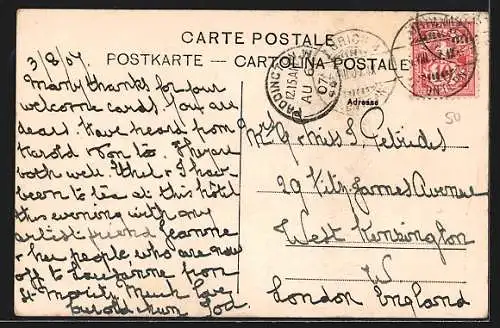 CARTE POSTALE
POSTKARTE — CARTOLINA POSTALE
3/8/07
Many thanks for your
welcome cards. You are
dears. Have heard from
Harold to. They are
both well. Ethel & I have
been to tea at this hôtel
this evening with my
artist friend Jeanne
& her people who are now
off to Lausanne from
St. Moritz. Much love
PADDINGTON
12.15AM
AU 6
07
Adresse
& Miss S. Petrides
29 Fitz-James Avenue
West Kensington
W
London England
50